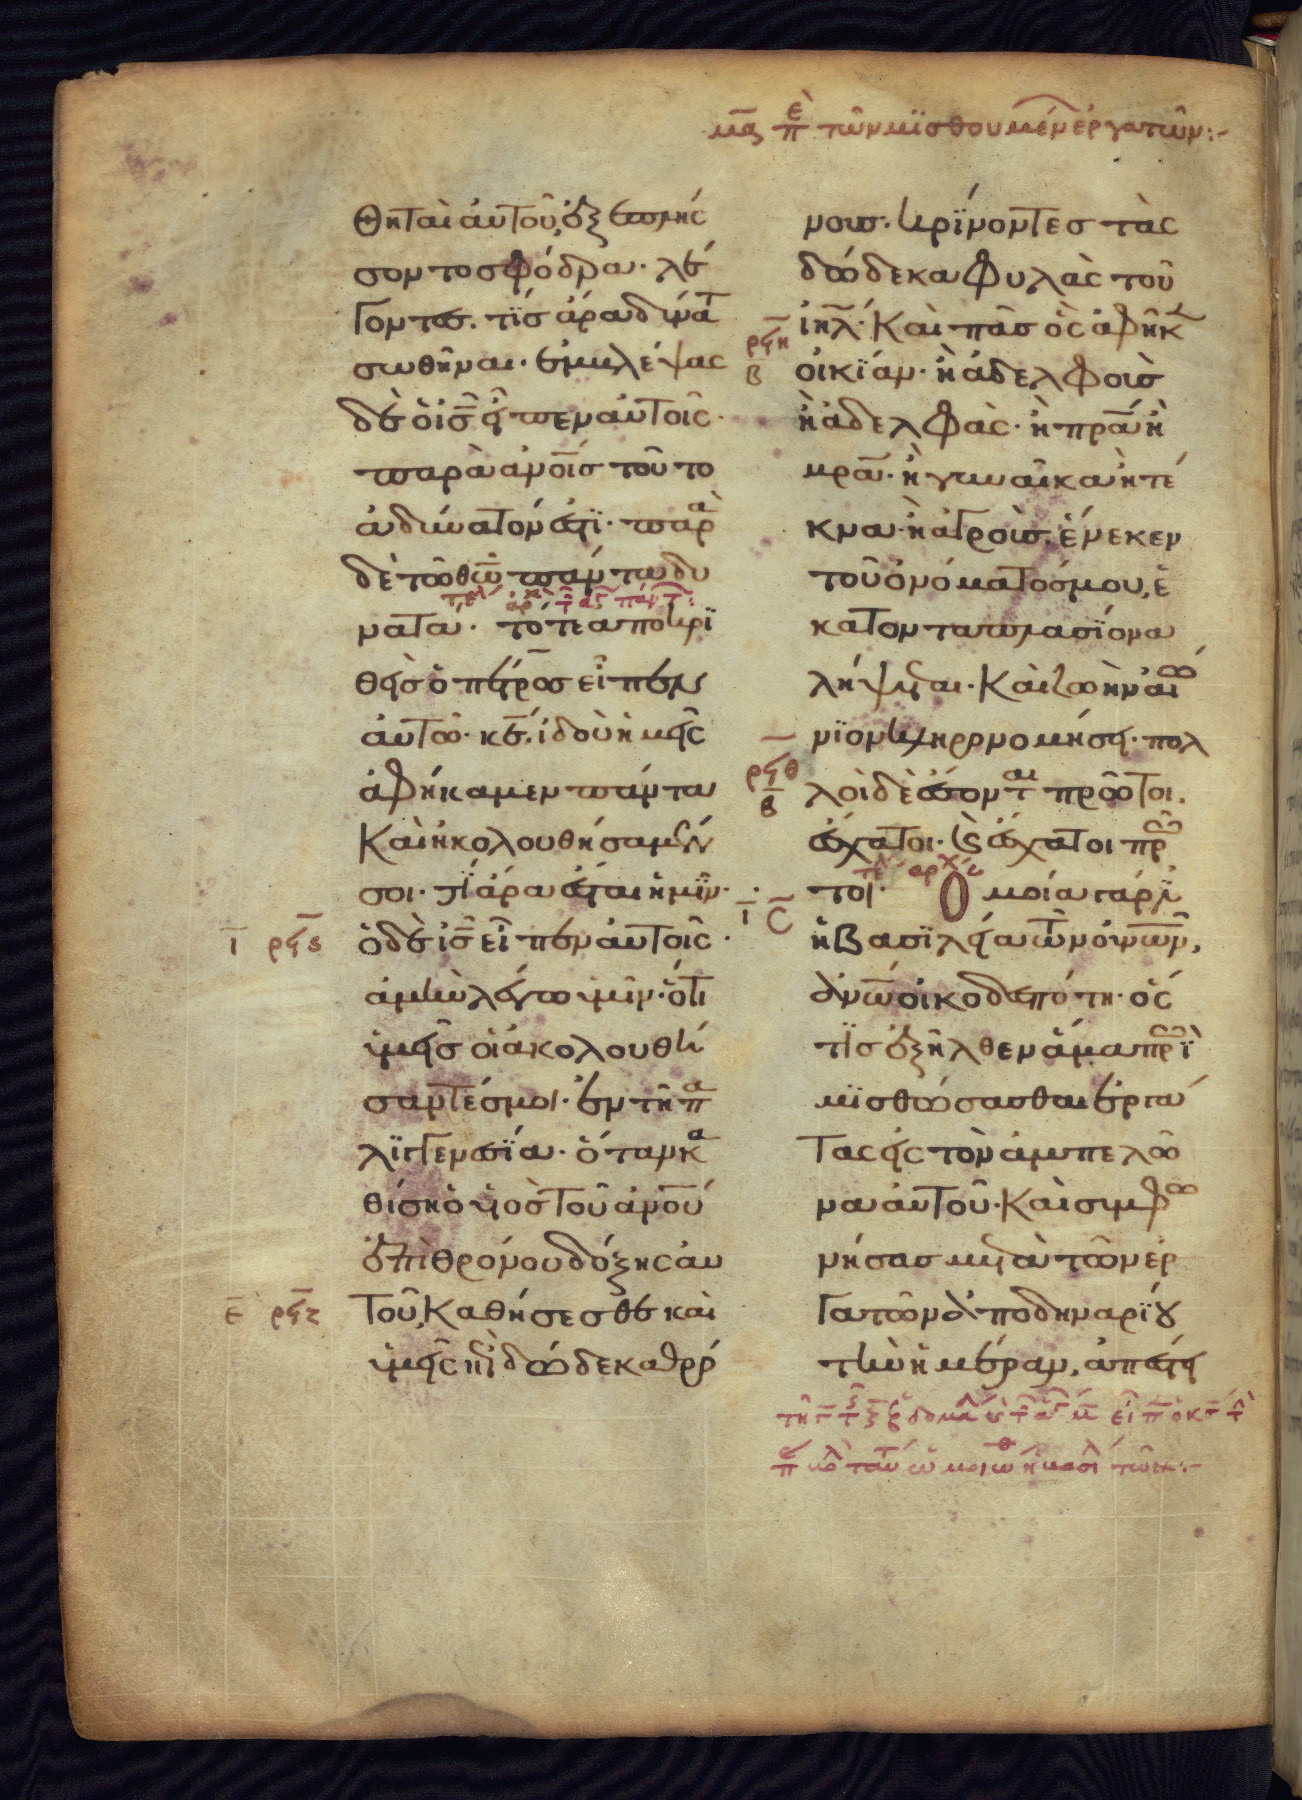 μα περὶ τῶν μϊσθουμένων ἐργατῶν:-
θηταὶ αὐτοῦ, ἐξεπλής
σοντο σφόδρα· λέ
γοντες· τίς ἄρα δύνατ
σωθῆναι· ἐμβλέψας
δὲ ὁ ις̅ εἶπεν αὐτοῖς·
παρὰ ανοις τοῦτο
ἀδύνατόν ἐστϊ· παρὰ
δὲ τῶ θω̅ πάντα δυ
τελ αρχ
νατά· τότε ἀποκρϊ
θεὶς ὁ πέτρος εἶπεν
αὐτῶ· κε̅· ἰδοὺ ἡμεῖς
ἀφήκαμεν πάντα
καὶ ἠκολουθήσαμέν
σοι· τί ἄρα ἔσται ἡμῖν·
ι̅ ρϟϛ ὁ δὲ ις̅ εἶπεν αὐτοῖς·
ἀμὴν λέγω ὑμῖν· ὅτι
ὑμεῖς οἱ ἀκολουθή
σαντές μοι· ἐν τῆ πα
λϊγγενεσία· ὅταν κα
θίση ὁ υἱὸς τοῦ ανου
ἐπὶ θρόνου δόξης αὐ
ε̅ ρϟζ τοῦ, καθήσεσθε καὶ
ὑμεῖς ἐπὶ δώδεκα θρό
νους· κρίνοντες τὰς
δώδεκα φυλὰς τοῦ
ιηλ· καὶ πᾶς ὃς ἀφῆκε
ρϟη β οἰκίαν· ἢ ἀδελφοὺς
ἢ ἀδελφὰς· ἢ πρα̅ ἢ
μρα̅· ἢ γυναῖκα ἢ τέ
κνα· ἢ ἀγροὺς· ἕνεκεν
τοῦ ὀνόματός μου, ἑ
κατονταπλασίονα
λήψεται· καὶ ζωὴν αἰώ
νϊον κληρονομήσει· πολ
ρϟθ β λοὶ δὲ ἔσονται πρῶτοι·
ἔσχατοι· καὶ ἔσχατοι πρῶ
τελ αρχ
ι̅ ϲ τοι· Ὁμοία γάρ ἐστιν
ἡ βασϊλεία τῶν οὐνων,
ανω οἰκοδεσπότη· ὅς
τϊς ἐξῆλθεν ἅμα πρωῒ
μϊσθώσασθαι ἐργά
τας εἰς τὸν ἀμπελῶ
να αὐτοῦ· καὶ συμφω
νήσας μετὰ τῶν ἐρ
γατῶν ἐκ δηναρίου
τὴν ἡμέραν, ἀπέστει